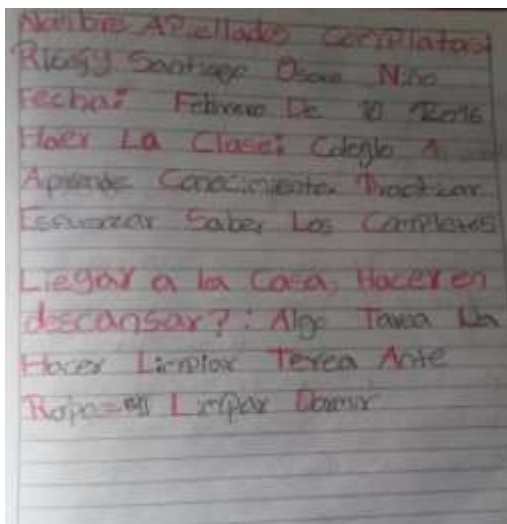 Nombre Apellados Completas:
Santiago Niño
Fecha: Febrero De 10 2016
Hacer La Clase: Colegio A
Aprende Conocimiento Practicar
Esfuarzar Saber Los Completos
Llegar a la Casa, Hacer en
descansar?: Algo Tarea La
Hacer Limpiar Terea Ante
Ropa = en Limpar Dormir